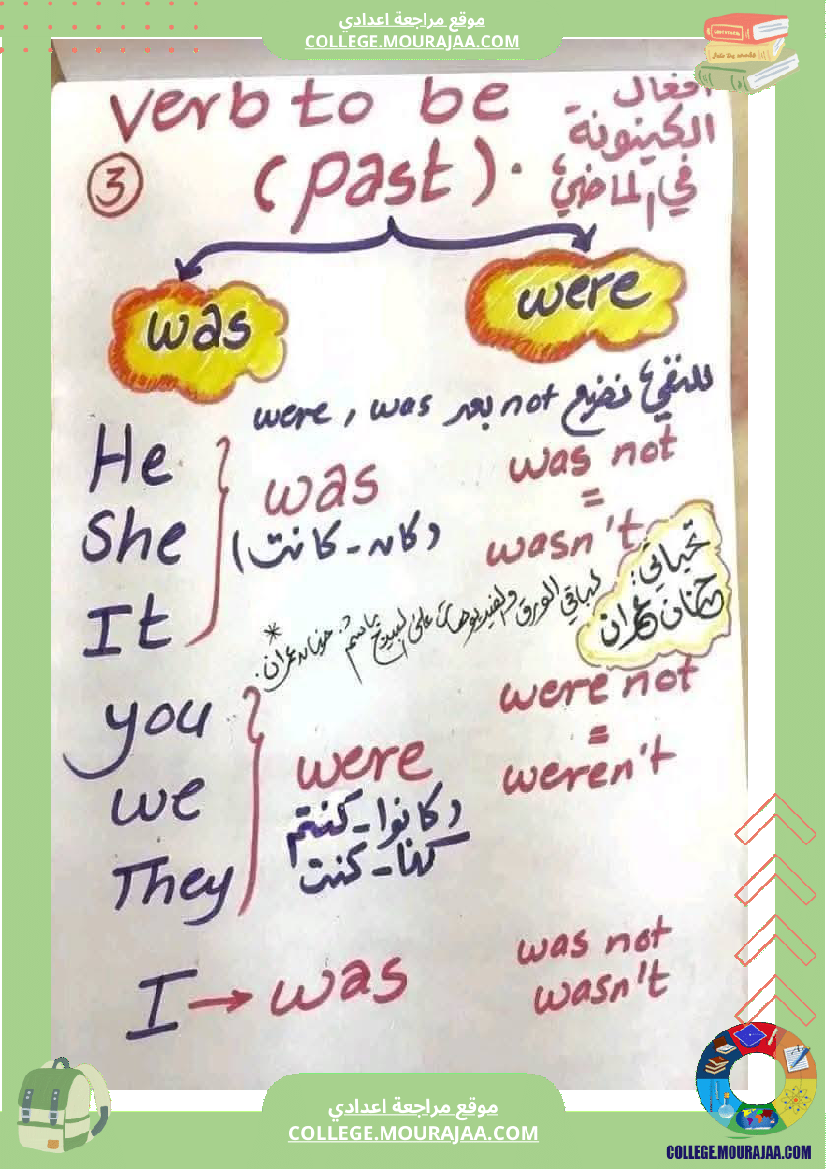 موقع مراجعة اعدادي
COLLEGE.MOURAJAA.COM
verb to be
(past).
أفعال
الكينونة
في الماضي
3
was
were
للنفي نضع not بعد were , was
He
She
It
was
(كان - كانت)
was not
=
wasn't
تحياتي:
حنان عمران
لباقي الورق والفيديوهات على البيدج باسم: حنان عمران *
you
we
They
were
(كانوا - كنتم
كنا - كنت
were not
=
weren't
I → was
was not
wasn't
موقع مراجعة اعدادي
COLLEGE.MOURAJAA.COM
COLLEGE.MOURAJAA.COM